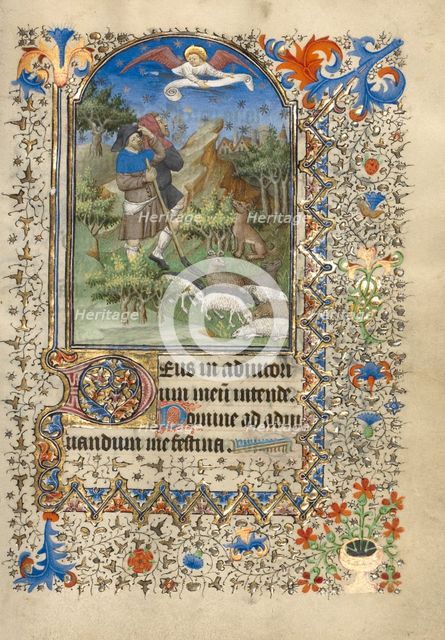 Heritage Heritage
Heritage Heritage
Deus in adiutori
um meū intende.
Domine ad adiu
uandum me festina.